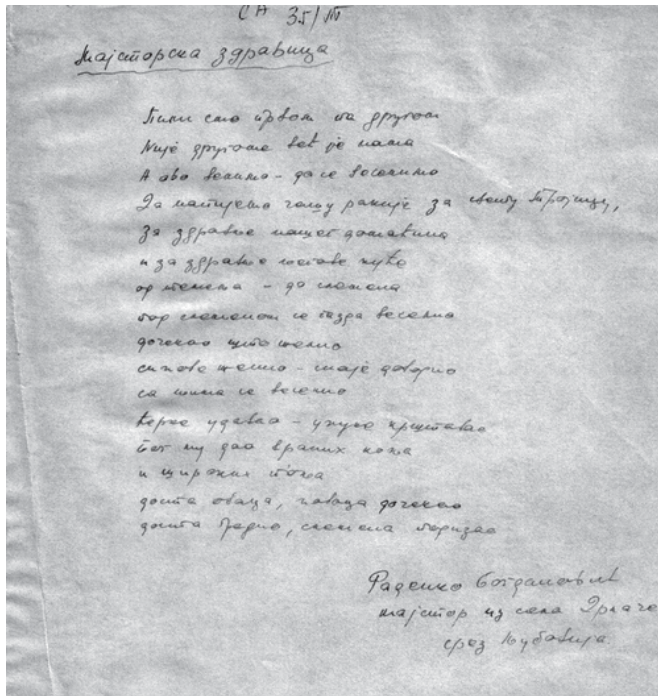 СА 35/III
Мајсторска здравица
Пили смо првом па другом
Није другоме већ је нама
А ово велимо - да се веселимо
Да попијемо чашу ракије за свету Тројицу,
за здравље нашег домаћина
и за здравље његове куће
од темена - до слемена
под слеменом се газда веселио
дочекао што желио
синове женио - снаје доводио
са њима се веселио
ћерке удавао - унуке крштавао
Бог му дао враних коња
и широких поља
доста оваца, новаца дочекао
доста радио, слемена подизао
Раденко Богдановић
мајстор из села Дрлаче
срез Љубовија.